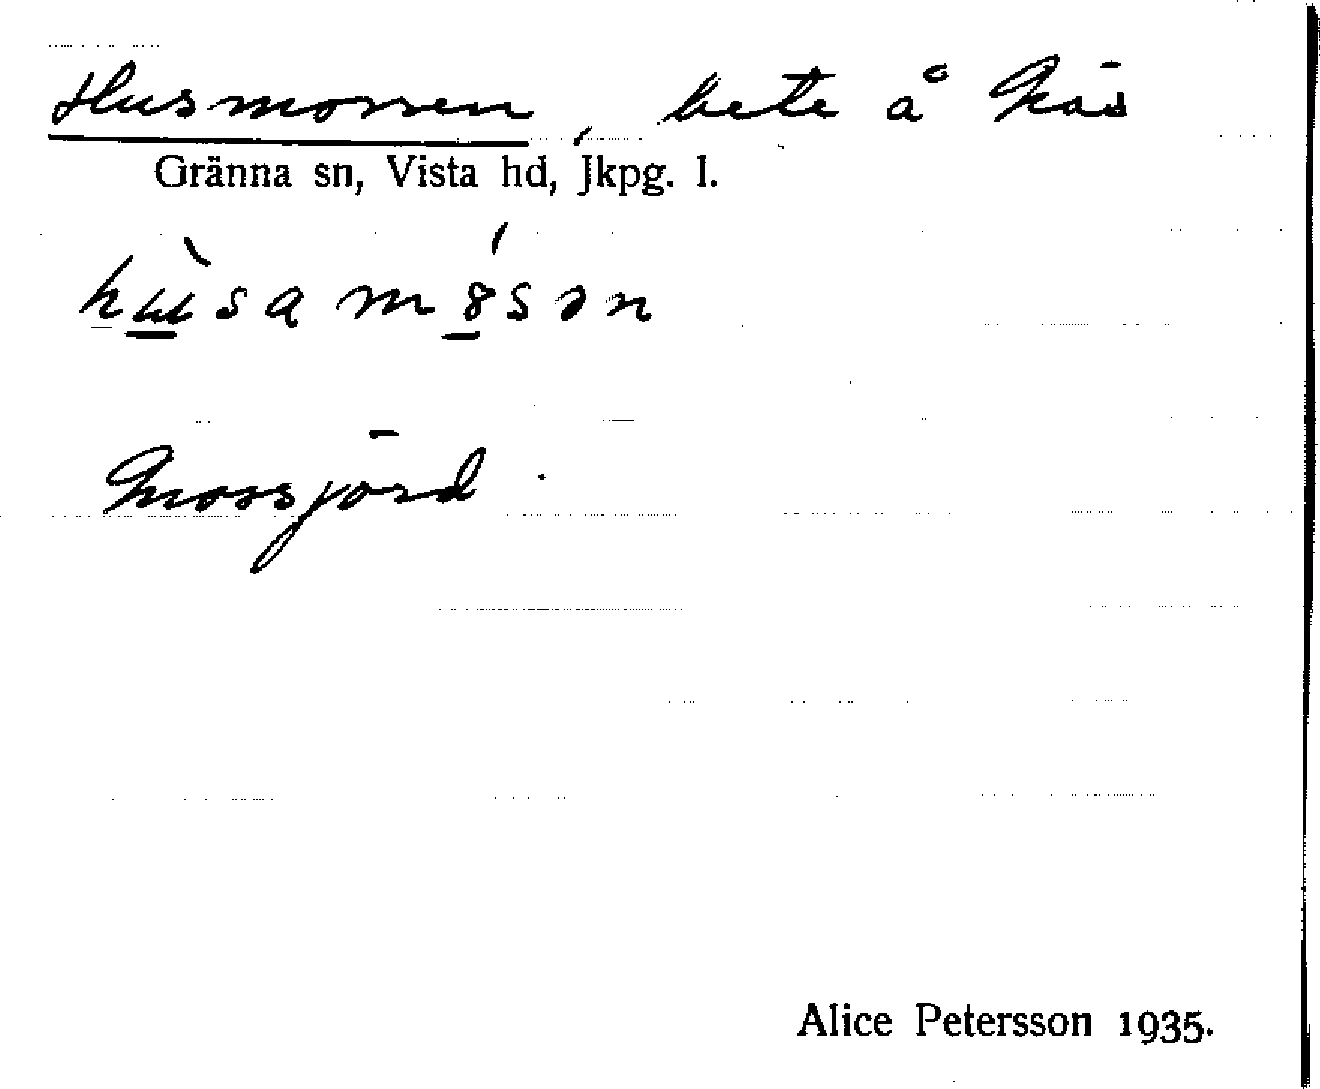 Husmossen, bete å Näs
Gränna sn, Vista hd, Jkpg. l.
Mossjord.
Alice Petersson 1935.